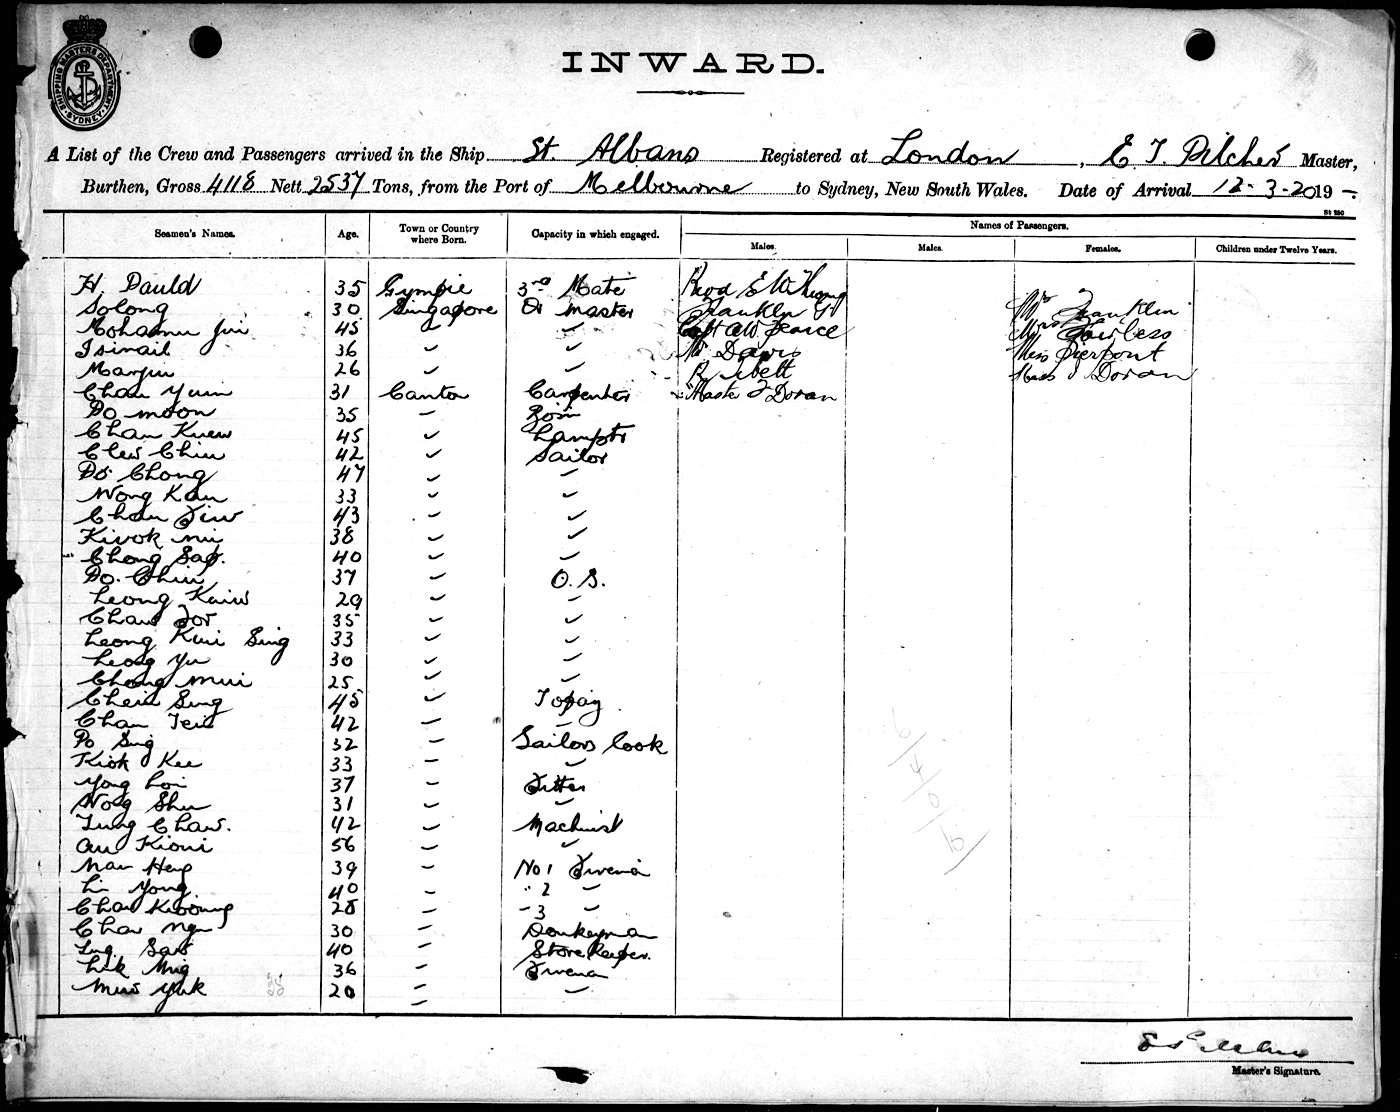 SHIPPING MASTERS DEPARTMENT SYDNEY
INWARD.
A List of the Crew and Passengers arrived in the Ship St. Albans Registered at London, E. T. Pilcher Master,
Burthen, Gross 4118 Nett 2537 Tons, from the Port of Melbourne to Sydney, New South Wales. Date of Arrival 12-3-20 19-.
St 250
Seamen's Names. Age. Town or Country where Born. Capacity in which engaged. Names of Passengers.
Males. Males. Females. Children under Twelve Years.
H. Dauld 35 Gympie 3rd Mate Revd E W
Solong 30 Singapore Qr master Franklin G Mrs Franklin
45 Capt Pearce Mrs
Ismail 36 Mr Davis Miss Pierpont
Marjin 26 R Miss Doran
Chan Yuin 31 Canton Carpenter Master J Doran
Do moon 35 Bosn
Chan Kuew 45 Lamptr
Chew Chiu 42 Sailor
Do Chong 47
Wong Kau 33
Chan 43
Kwok 38
Chong Sap. 40
Do. Chiu 37 O.S.
Leong Kaiw 29
Chan For 35
Leong Kwi Sing 33
Leong Yu 30
Chong Mui 25
Cheu Sung 45 Topay
Chan 42
Do Sing 32 Sailors Cook
Kiok Kee 33
Yong Loi 37 Fitter
Wong Shu 31
Tung Chaw. 42 Machinist
Au Kioni 56
Man Heng 39 No 1 Fireman
Li Yong 40 " 2
Chan Kwoong 28 " 3
Chan Ngu 30 Donkeyman
Sam 40 Storekeeper.
Luk Ming 36 Fireman
Muw Yuk 20
Master's Signature.